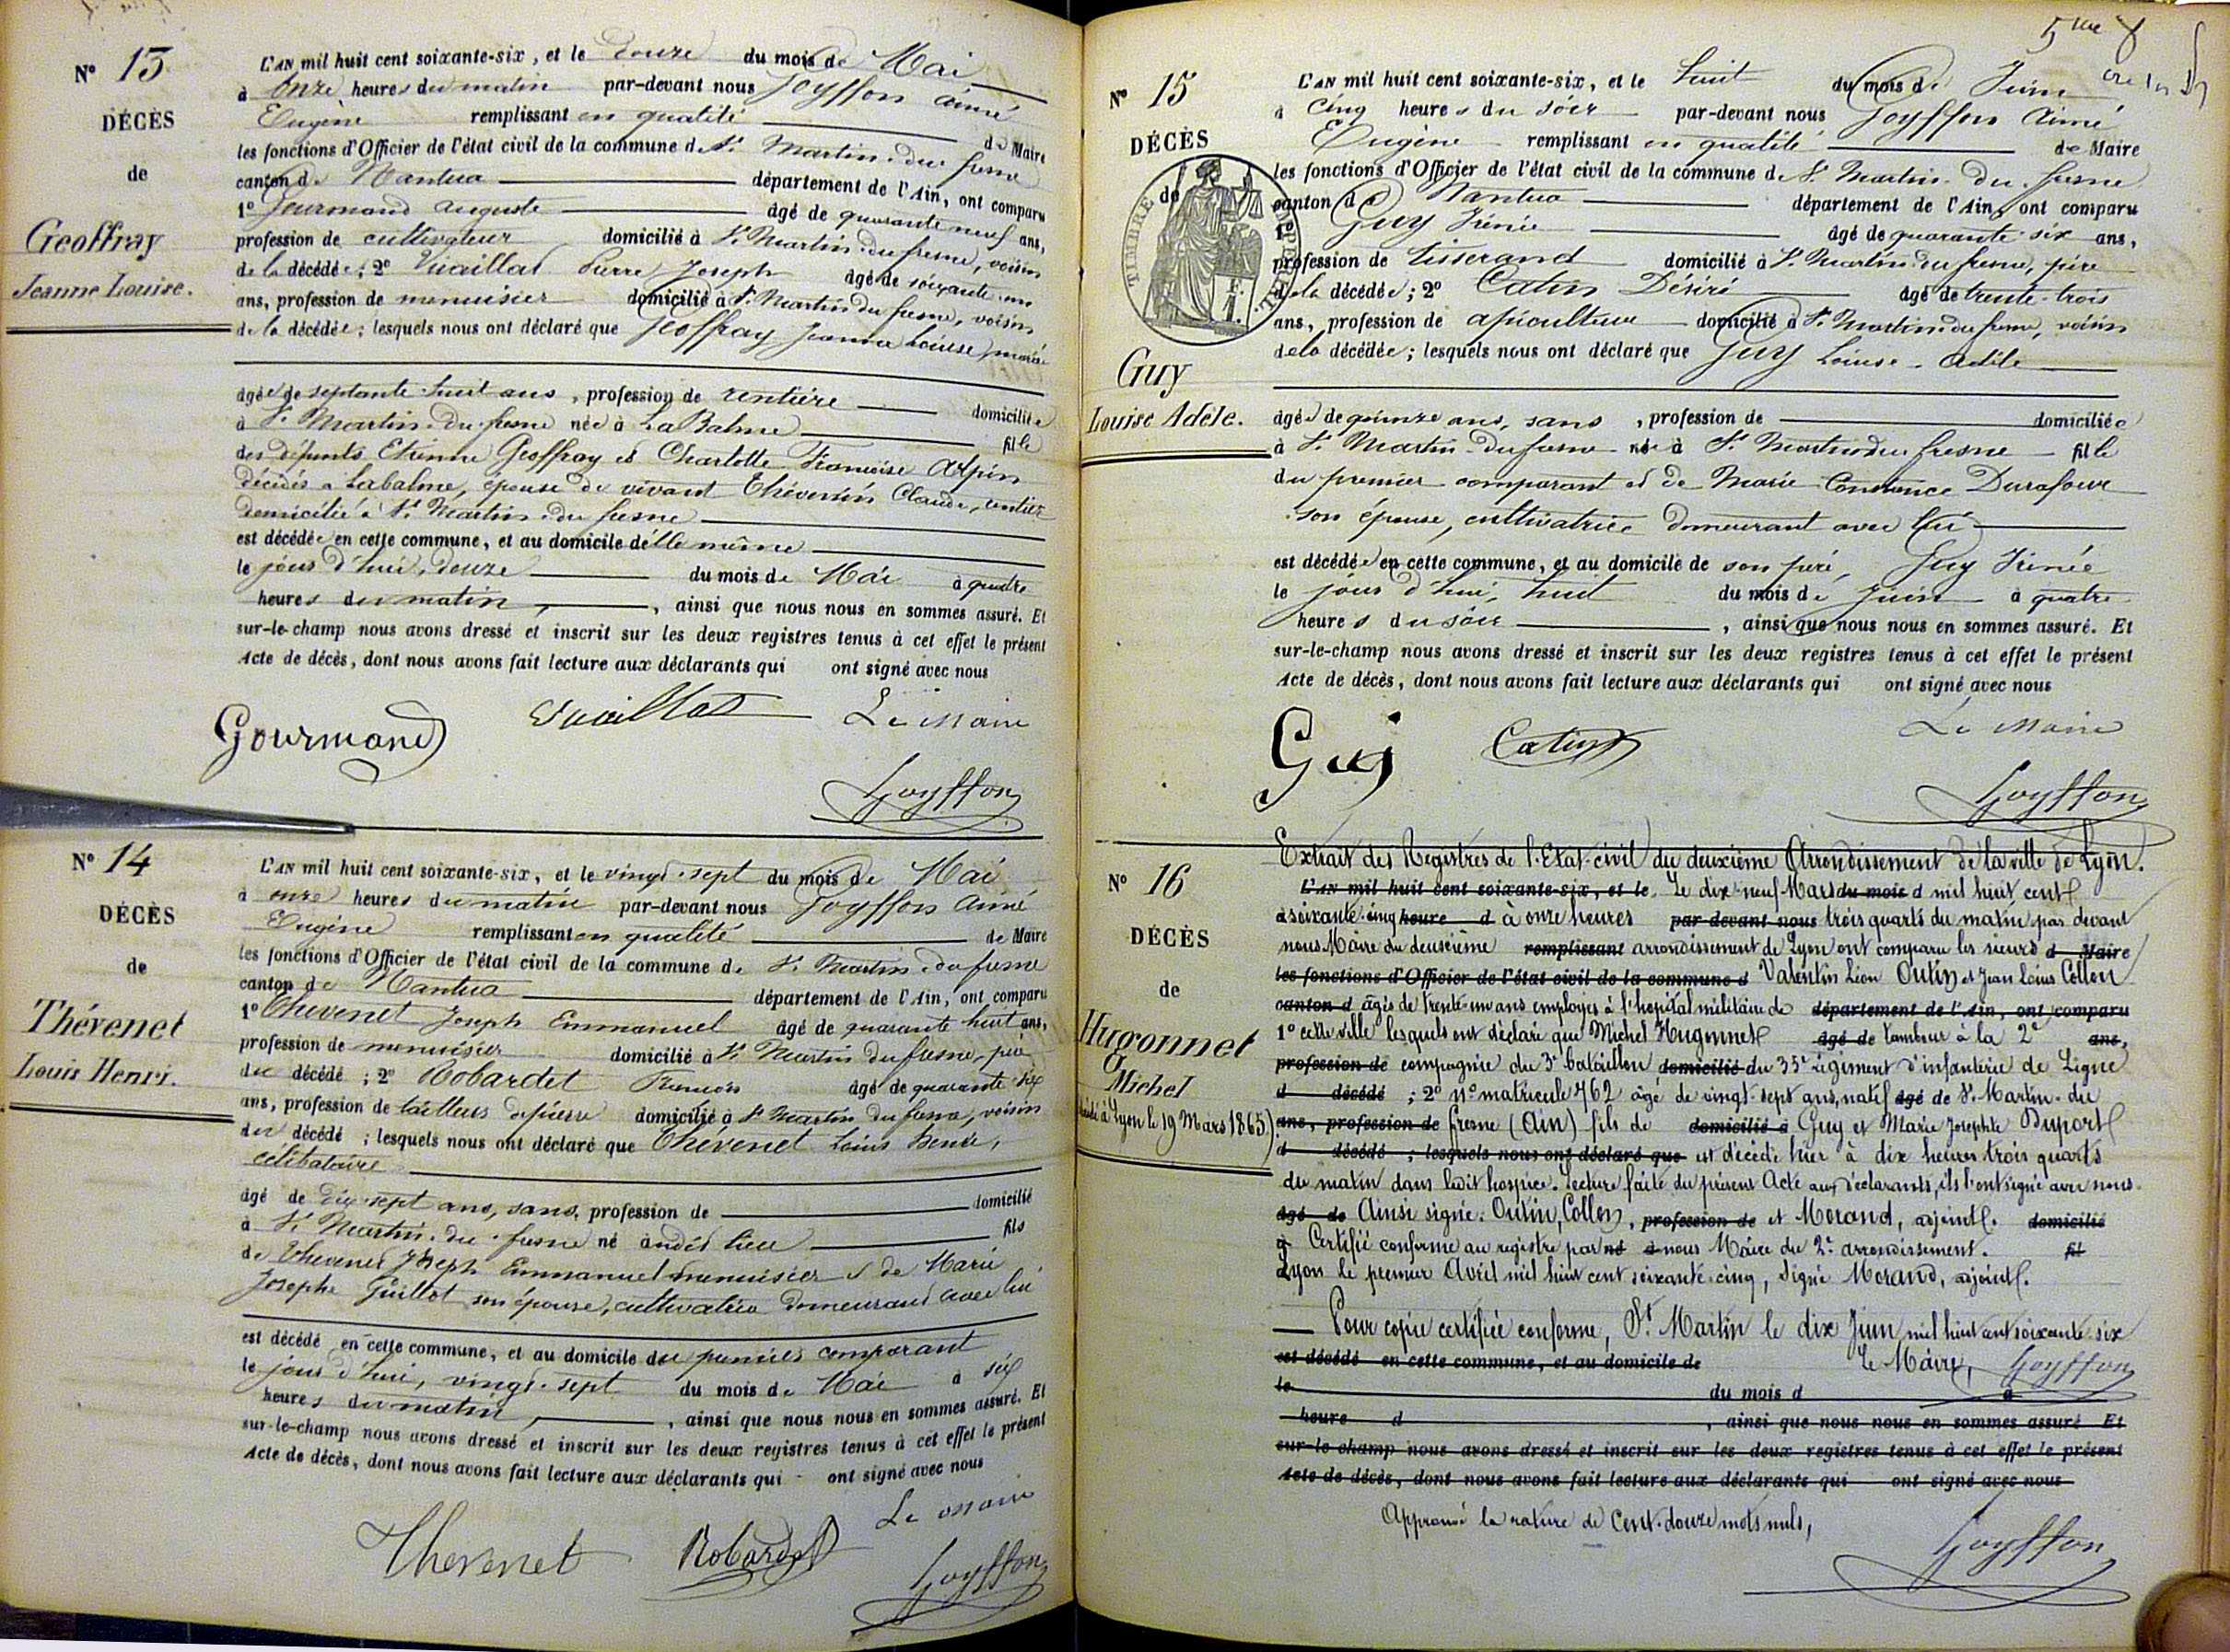 N° 13
DÉCÈS
de
Geoffray
Jeanne Louise.
L'AN mil huit cent soixante-six, et le douze du mois de Mai
à Onze heures du matin par-devant nous Goyffon Aimé
Eugène remplissant en qualité de Maire
les fonctions d'Officier de l'état civil de la commune de St Martin-du-fresne
canton de Nantua département de l'Ain, ont comparu
1° Gourmand Auguste âgé de quarante neuf ans,
profession de cultivateur domicilié à St Martin-du-fresne, voisin
de la décédée; 2° Vuaillat Pierre Joseph âgé de soixante-un
ans, profession de menuisier domicilié à St Martin du fresne, voisin
de la décédée; lesquels nous ont déclaré que Geoffray Jeanne Louise, mariée
âgée de septante-huit ans, profession de rentière domiciliée
à St Martin-du-fresne née à La Balme fille
des défunts Etienne Geoffray et Charlotte Françoise Alpin
décédés à Labalme, épouse de vivant Thévenin Claude, rentier
domicilié à St Martin-du-fresne
est décédée en cette commune, et au domicile d'elle même
le jour d'hui, douze du mois de Mai à quatre
heures du matin, ainsi que nous nous en sommes assuré. Et
sur-le-champ nous avons dressé et inscrit sur les deux registres tenus à cet effet le présent
Acte de décès, dont nous avons fait lecture aux déclarants qui ont signé avec nous
Gourmand Vuaillat Le Maire
Goyffon
N° 14
DÉCÈS
de
Thévenet
Louis Henri.
L'AN mil huit cent soixante-six, et le vingt-sept du mois de Mai
à onze heures du matin par-devant nous Goyffon Aimé
Eugène remplissant en qualité de Maire
les fonctions d'Officier de l'état civil de la commune de St Martin-du-fresne
canton de Nantua département de l'Ain, ont comparu
1° Thévenet Joseph Emmanuel âgé de quarante huit ans,
profession de menuisier domicilié à St Martin du fresne, père
du décédé; 2° Robardet François âgé de quarante-six
ans, profession de tailleur de pierre domicilié à St Martin du fresne, voisin
du décédé; lesquels nous ont déclaré que Thévenet Louis Henri,
célibataire
âgé de dix-sept ans, sans, profession de domicilié
à St Martin-du-fresne né audit lieu fils
de Thevenet Joseph Emmanuel menuisier et de Marie
Josephe Guillot son épouse, cultivatrice demeurant avec lui
est décédé en cette commune, et au domicile du premier comparant
le jour d'hui, vingt-sept du mois de Mai à six
heures du matin, ainsi que nous nous en sommes assuré. Et
sur-le-champ nous avons dressé et inscrit sur les deux registres tenus à cet effet le présent
Acte de décès, dont nous avons fait lecture aux déclarants qui ont signé avec nous
Le Maire
Thevenet Robardet Goyffon
N° 15
DÉCÈS
de
TIMBRE IMPÉRIAL
Guy
Louise Adèle.
L'AN mil huit cent soixante-six, et le huit du mois de Juin
à Cinq heures du soir par-devant nous Goyffon Aimé
Eugène remplissant en qualité de Maire
les fonctions d'Officier de l'état civil de la commune de St Martin-du-fresne
canton de Nantua département de l'Ain, ont comparu
1° Guy Irénée âgé de quarante-six ans,
profession de tisserand domicilié à St Martin-du-fresne, père
de la décédée; 2° Catin Désiré âgé de trente-trois
ans, profession de apiculteur domicilié à St Martin-du-fresne, voisin
de la décédée; lesquels nous ont déclaré que Guy Louise-Adèle
âgée de quinze ans, sans, profession de domiciliée
à St Martin-du-fresne née à St Martin du fresne fille
du premier comparant et de Marie-Constance Durafour
son épouse, cultivatrice demeurant avec lui
est décédée en cette commune, et au domicile de son père, Guy Irénée
le jour d'hui, huit du mois de Juin à quatre
heures du soir, ainsi que nous nous en sommes assuré. Et
sur-le-champ nous avons dressé et inscrit sur les deux registres tenus à cet effet le présent
Acte de décès, dont nous avons fait lecture aux déclarants qui ont signé avec nous
Guy Catin Le Maire
Goyffon
N° 16
DÉCÈS
de
Hugonnet
Michel
(décédé à Lyon le 19 Mars 1865)
Extrait des Registres de l'Etat-civil du deuxième Arrondissement de la ville de Lyon.
L'AN mil huit cent soixante-six, et le Le dix-neuf Mars du mois d mil huit cent
à soixante-cinq heure d à onze heures par-devant nous trois quarts du matin par devant
nous Maire du deuxième remplissant arrondissement de Lyon ont comparu les sieurs d Maire
les fonctions d'Officier de l'état civil de la commune d Valentin Léon Outin et Jean Louis Collon
canton d âgés de trente-un ans employés à l'hopital militaire de département de l'Ain, ont comparu
1° cette ville lesquels ont déclaré que Michel Hugonnet âgé de tambour à la 2e ans,
profession de compagnie du 3e bataillon domicilié du 33e régiment d'infanterie de Ligne
d décédé; 2° n° matricule 762 âgé de vingt-sept ans, natif âgé de St Martin-du
ans, profession de fresne (Ain) fils de domicilié à Guy et Marie Josephte Duport
d décédé; lesquels nous ont déclaré que est décédé hier à dix heures trois quarts
du matin dans ledit hospice. Lecture faite du présent Acte aux déclarants, ils l'ont signé avec nous.
âgé de Ainsi signé: Outin, Collon, profession de et Morand, adjoint. domicilié
à Certifié conforme au registre par né à nous Maire du 2e arrondissement. fil
Lyon le premier Avril mil huit cent soixante-cinq, Signé Morand, adjoint.
Pour copie certifiée conforme, St Martin le dix Juin mil huit cent soixante-six
est décédé en cette commune, et au domicile de Le Maire, Goyffon
le du mois d à
heure d , ainsi que nous nous en sommes assuré Et
sur-le-champ nous avons dressé et inscrit sur les deux registres tenus à cet effet le présent
Acte de décès, dont nous avons fait lecture aux déclarants qui ont signé avec nous
Approuvé la rature de Cent-douze mots nuls,
Goyffon